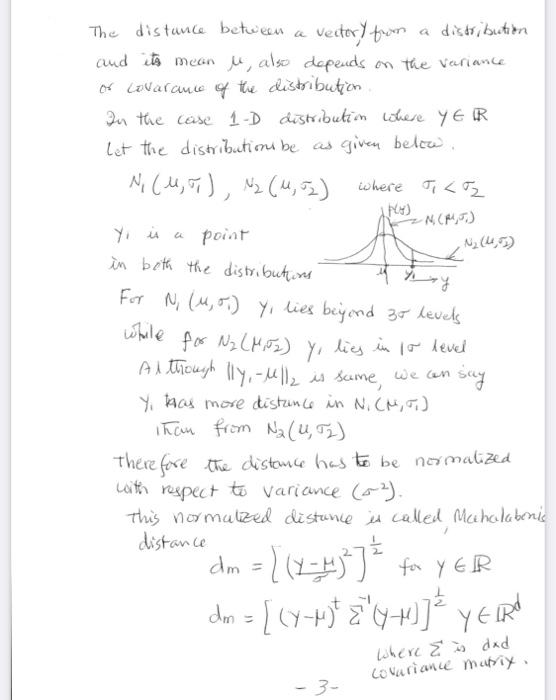 The distance between a vector y from a distribution
and its mean μ, also depends on the variance
or covarance of the distribution.
In the case 1-D distribution where y ∈ ℝ
Let the distributions be as given below.
N₁(μ,σ₁), N₂(μ,σ₂) where σ₁ < σ₂
P(y)
N₁(μ,σ₁)
N₂(μ,σ₂)
μ y₁ → y
y₁ is a point
in both the distributions
For N₁(μ,σ₁) y₁ lies beyond 3σ levels
while for N₂(μ,σ₂) y₁ lies in 1σ level
Although ||y₁-μ||₂ is same, we can say
y₁ has more distance in N₁(μ,σ₁)
than from N₂(μ,σ₂)
Therefore the distance has to be normalized
with respect to variance (σ²).
This normalized distance is called, Mahalabonis
distance
dm = [((y-μ)/σ)²]^½ for y ∈ ℝ
dm = [(y-μ)ᵗ Σ⁻¹(y-μ)]^½ y ∈ ℝᵈ
where Σ is dxd
covariance matrix.
- 3 -